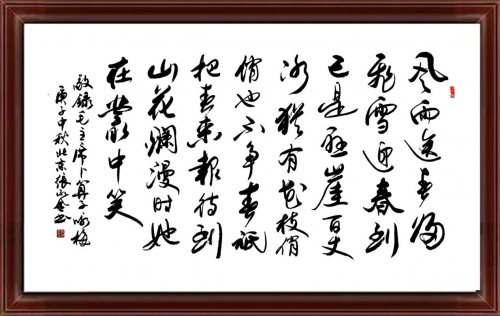 风雨送春归
飞雪迎春到
已是悬崖百丈
冰犹有花枝俏
俏也不争春祇
把春来报待到
山花爛漫时她
在叢中笑
敬録毛主席卜算子咏梅
庚子中秋北京张山书